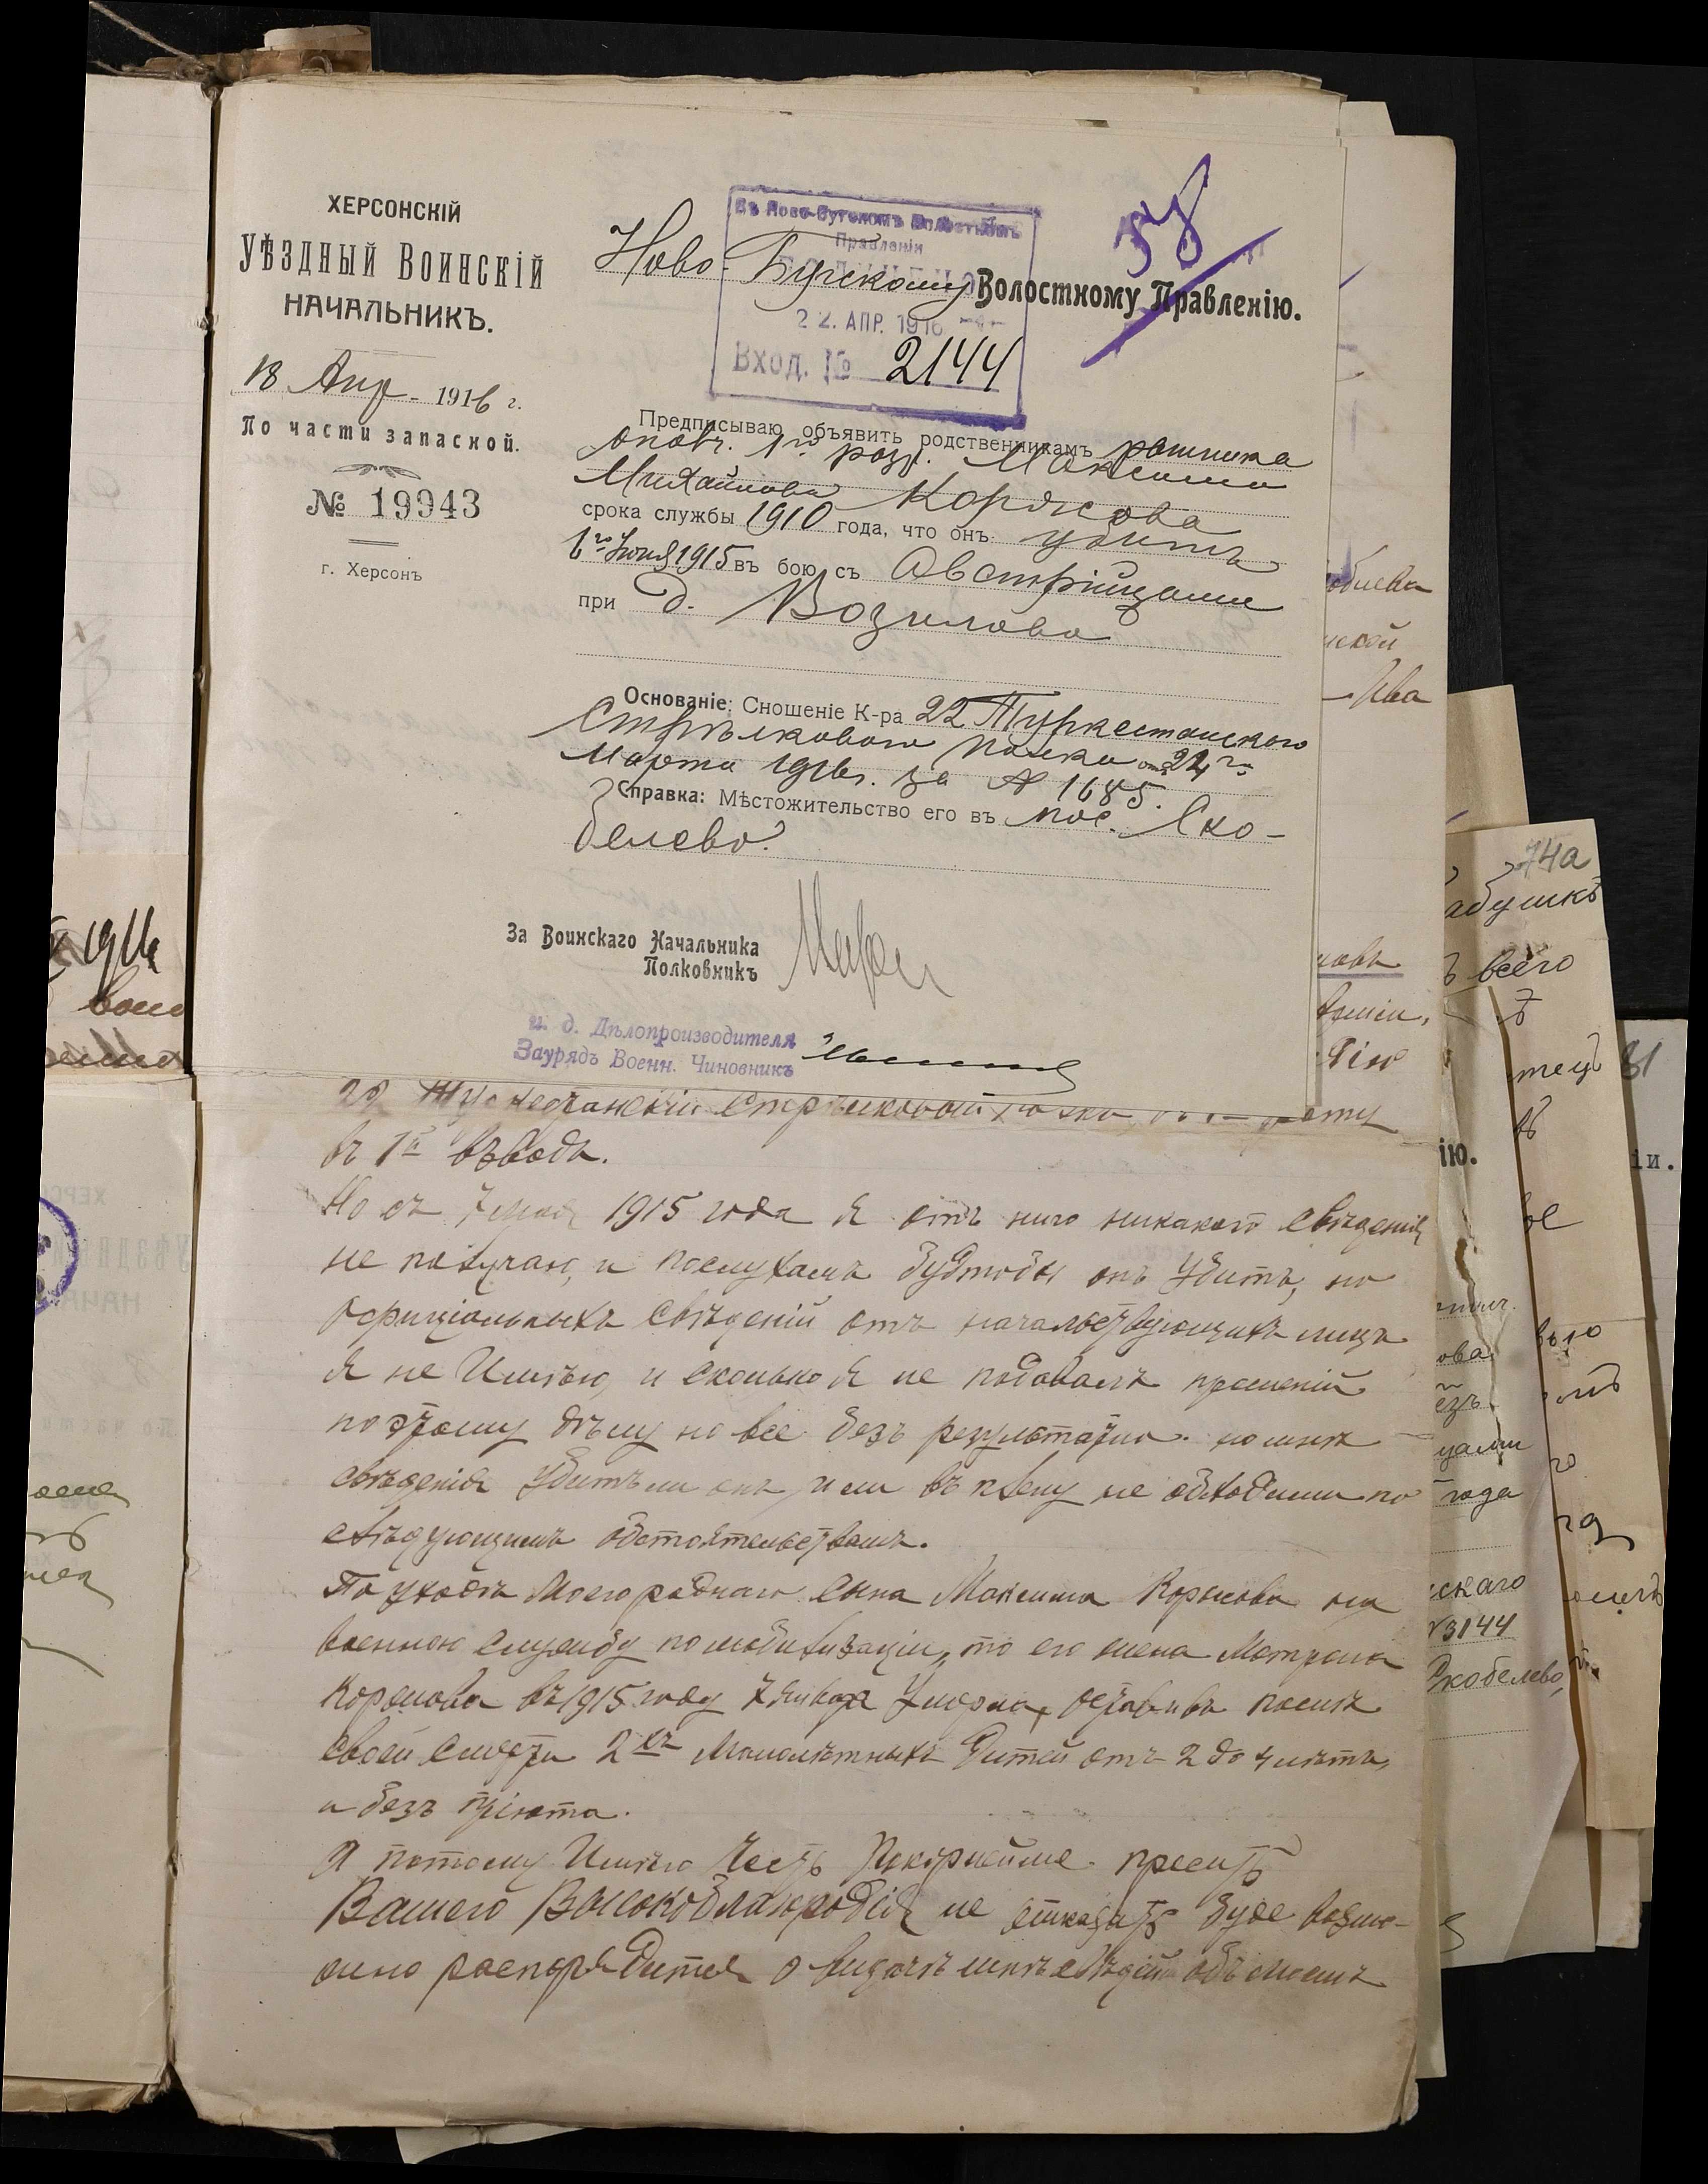 ХЕРСОНСКІЙ
УѢЗДНЫЙ ВОИНСКІЙ
НАЧАЛЬНИКЪ.
18 Апр - 1916 г.
По части запасной.
№ 19943
г. Херсонъ
58
Въ Ново-Бугскомъ Волостномъ
Правленіи
22. АПР. 1916
Вход. № 2144
Ново-Бугскому Волостному Правленію.
Предписываю объявить родственникамъ ратника
ополч. 1го разр. Максима
Михайлова Коржова
срока службы 1910 года, что онъ: убитъ
6го Іюня 1915 въ бою съ Австрійцами
при д. Возилова
Основаніе: Сношеніе К-ра 22 Туркестанскаго
Стрѣлковаго полка отъ 24го
Марта 1916г. за № 1685.
Справка: Мѣстожительство его въ пос. Ско-
белево.
За Воинскаго Начальника
Полковникъ
и. д. Дѣлопроизводителя
Заурядъ Военн. Чиновникъ
Стрѣлковой
въ 1й взводъ.
Но съ 1915 года я отъ него никакого свѣденія
не получаю, и послухамъ будтобы онъ убитъ, но
официальныхъ свѣденій отъ начальствующихъ лицъ
я не Имѣю, и сколько я не подавалъ прошеній
по этому дѣлу но все безъ результатно. но мнѣ
свѣденія убитъ ли онъ, или въ плену не обходими по
слѣдующимъ обстоятельствамъ.
По уходѣ моего роднаго сына Максима Коржова на
военною службу по мобилизаціи, то его жена Матрона
Коржова въ 1915 году 7 Января Умерла, оставивъ послѣ
своей смерти 2хъ Малолѣтныхъ Дитей отъ 2 до 4 лѣтъ,
и безъ пріюта.
А потому Имѣю честь Покорнейше просить
Вашего Высокоблагородія не отказать буде возмо-
жно распорядится о выдачѣ мнѣ свѣденій объ моемъ
74а
всего
81
года
скаго
№3144
Скобелево,